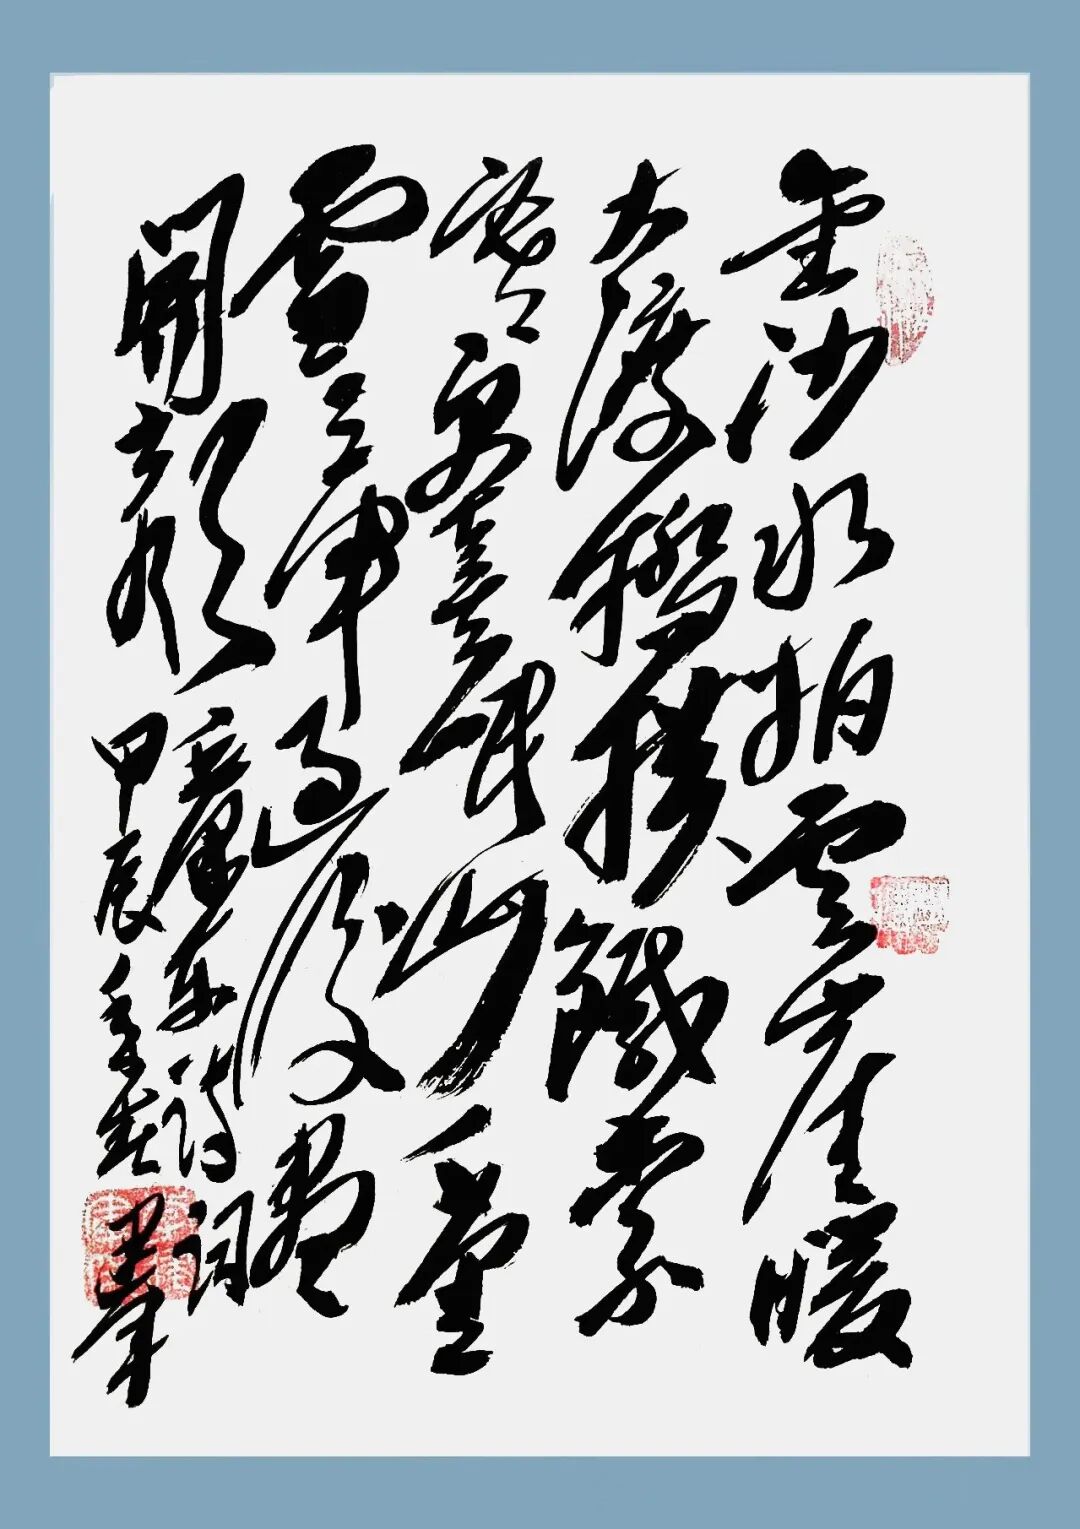 金沙水拍雲崖暖
大渡橋橫鐵索
寒更喜岷山千里
雪三軍過後盡
開顏
毛澤東詩詞
甲辰季春